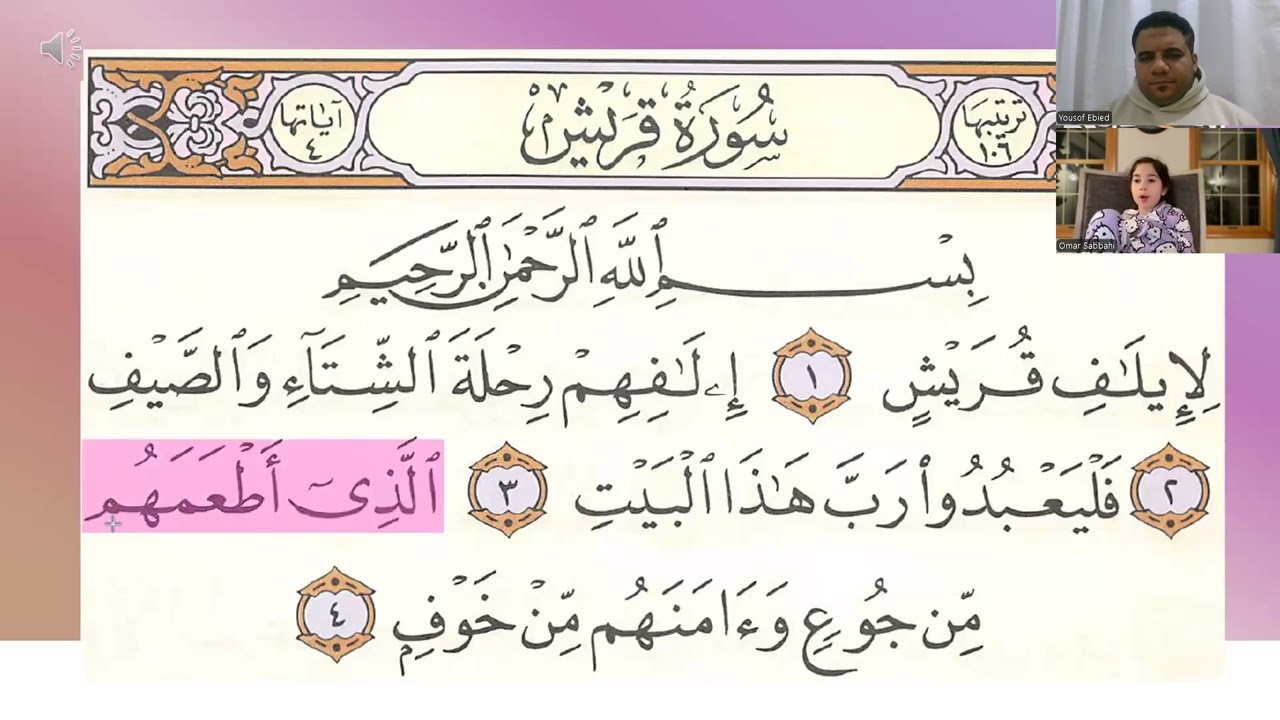 ترتيبها ١٠٦
سُورَةُ قُرَيْشٍ
آياتها ٤
بِسْمِ ٱللَّهِ ٱلرَّحْمَٰنِ ٱلرَّحِيمِ
لِإِيلَٰفِ قُرَيْشٍ ١ إِۦلَٰفِهِمْ رِحْلَةَ ٱلشِّتَآءِ وَٱلصَّيْفِ
٢ فَلْيَعْبُدُوا۟ رَبَّ هَٰذَا ٱلْبَيْتِ ٣ ٱلَّذِىٓ أَطْعَمَهُم
مِّن جُوعٍ وَءَامَنَهُم مِّنْ خَوْفٍۭ ٤
Yousof Ebied
Omar Sabbahi